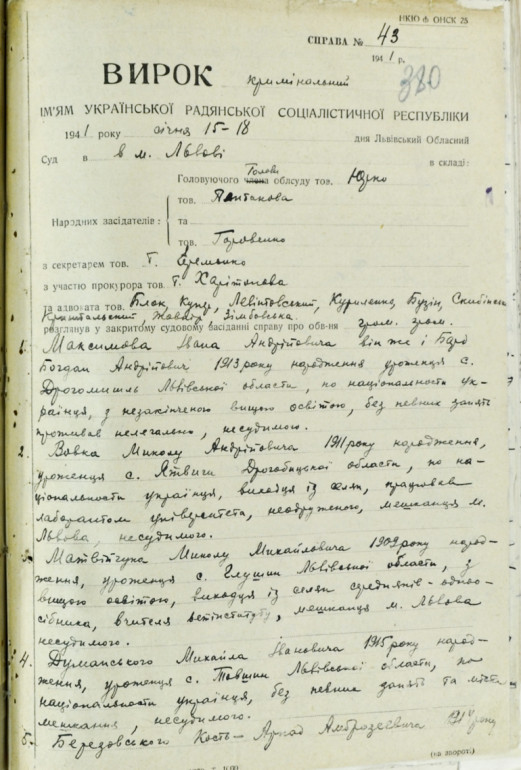 НКЮ ф ОНСК 25
СПРАВА № 43
1941 р.
380
ВИРОК кримінальний
ІМ'ЯМ УКРАЇНСЬКОЇ РАДЯНСЬКОЇ СОЦІАЛІСТИЧНОЇ РЕСПУБЛІКИ
1941 року січня 15-18 дня Львівський Обласний
Суд в в м. Львові в складі:
Головуючого члена Голови облсуду тов. Юзко
тов.
Народних засідателів: та
тов. Горовенко
з секретарем тов. т. Єременко
з участю прокурора тов. т. Харітонова
та адвоката тов. Блок, Кунде, Левінтовский, Куриленко, Бузін,
Жовнір, Зімбовська.
розглянув у закритому судовому засіданні справу про обв-ня гром. гром.
1. Максимова Івана Андрійовича він же і Бард
Богдан Андрійович 1913 року народження уроженця с.
Дрогомишль Львівської области, по національности ук-
раїнця, з незакінченою вищою освітою, без певних занять
проживав нелегально, несудимого.
2. Вовка Миколу Андрійовича 1911 року народження,
уроженця с. Ятвяги Дрогобицької области, по на-
ціональности українця, виходця із селян, працював
лаборантом університета, неодруженого, мешканця м.
Львова, несудимого.
3. Матвійчука Миколу Михайловича 1909 року народ-
ження, уроженця с. Глушин Львівської области, з
вищою освітою, виходця із селян середняків-одноо-
сібника, вчителя ветінституту, мешканця м. Львова
несудимого.
4. Думанського Михайла Івановича 1915 року народ-
ження, уроженця с. Товщин Львівської области, по
національности українця, без певних занять та міста
мешкання, несудимого.
5. Березовського Кость-Аркад Амброзієвича 191 року
(на звороті)